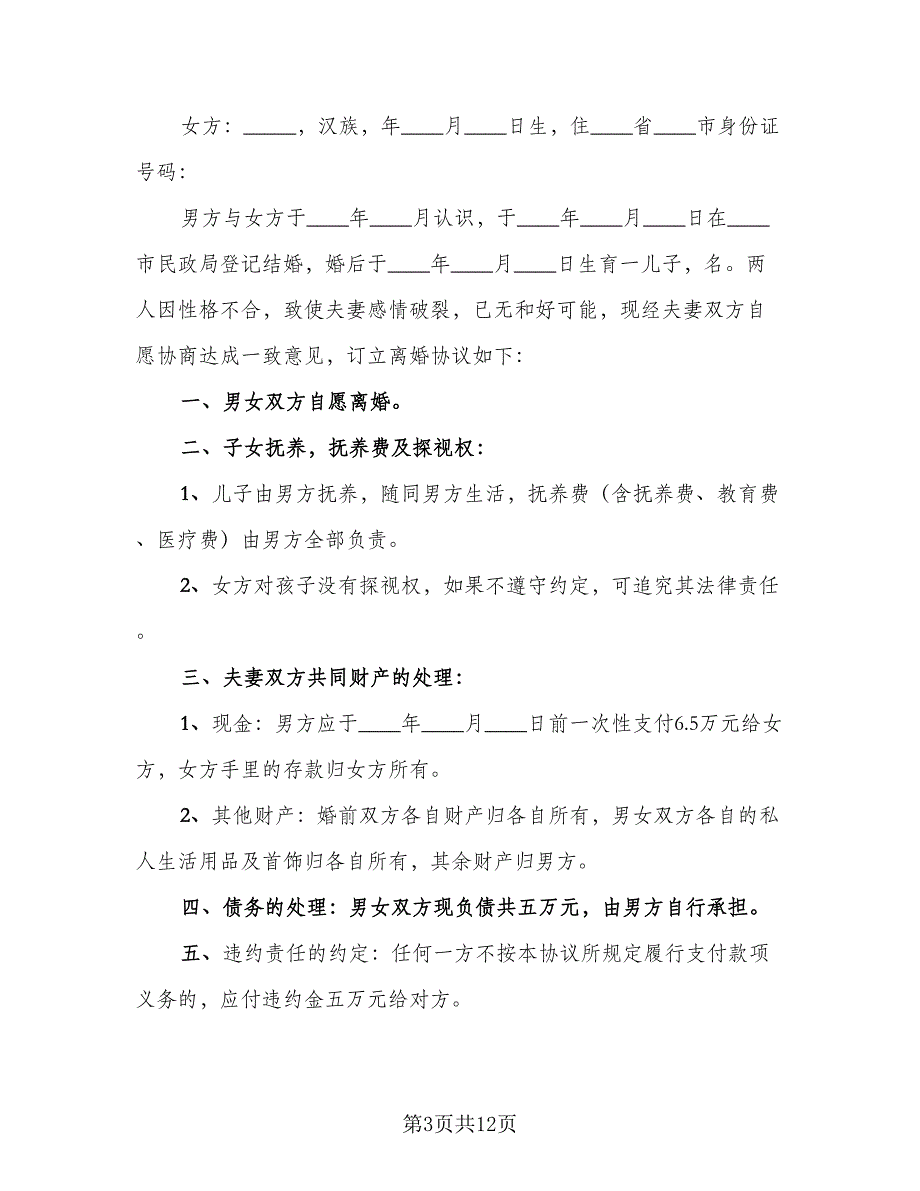 女方：_____，汉族，年____月____日生，住____省____市身份证
号码：
男方与女方于____年____月认识，于____年____月____日在____
市民政局登记结婚，婚后于____年____月____日生育一儿子，名。两
人因性格不合，致使夫妻感情破裂，已无和好可能，现经夫妻双方自
愿协商达成一致意见，订立离婚协议如下：
一、男女双方自愿离婚。
二、子女抚养，抚养费及探视权：
1、儿子由男方抚养，随同男方生活，抚养费（含抚养费、教育费
、医疗费）由男方全部负责。
2、女方对孩子没有探视权，如果不遵守约定，可追究其法律责任
。
三、夫妻双方共同财产的处理：
1、现金：男方应于____年____月____日前一次性支付6.5万元给女
方，女方手里的存款归女方所有。
2、其他财产：婚前双方各自财产归各自所有，男女双方各自的私
人生活用品及首饰归各自所有，其余财产归男方。
四、债务的处理：男女双方现负债共五万元，由男方自行承担。
五、违约责任的约定：任何一方不按本协议所规定履行支付款项
义务的，应付违约金五万元给对方。
第3页共12页